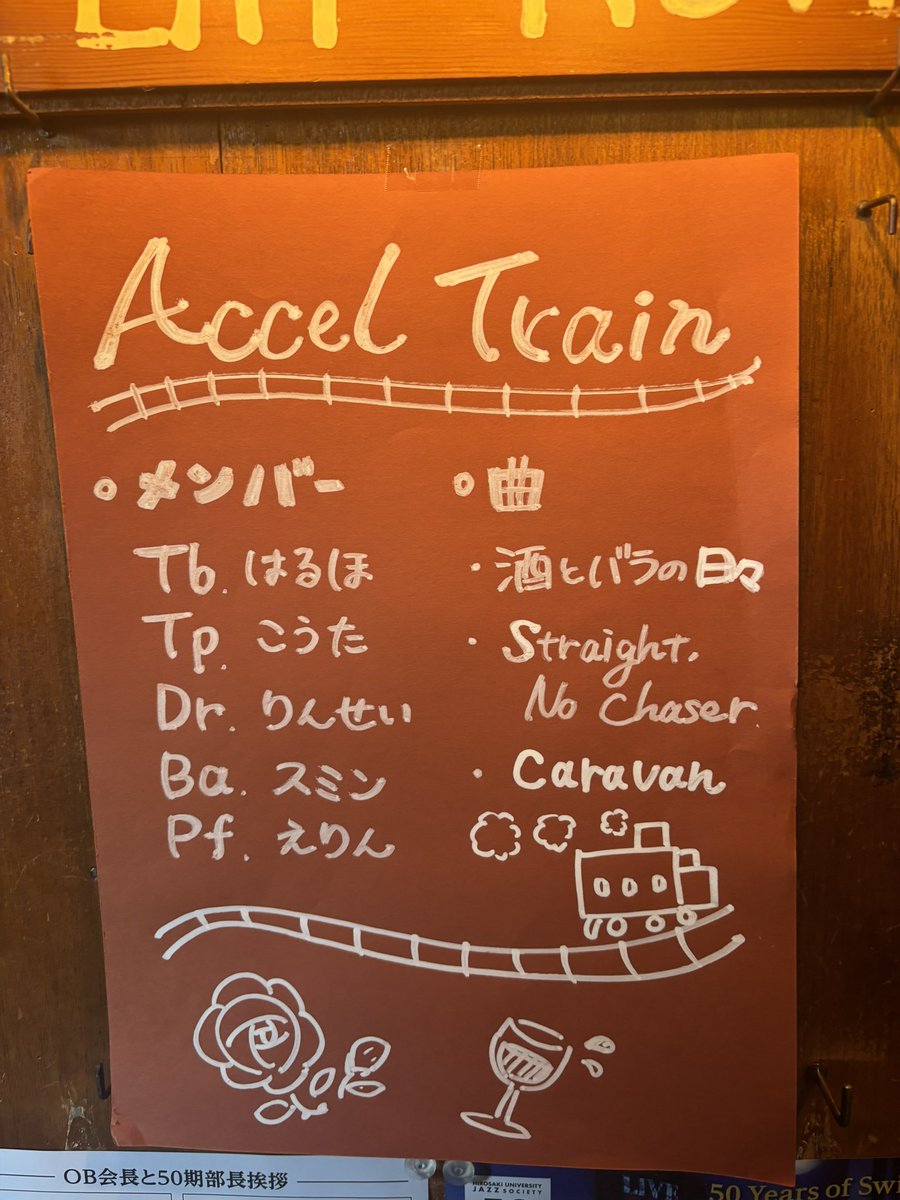 Accel Train
○メンバー
Tb. はるほ
Tp. こうた
Dr. りんせい
Ba. スミン
Pf. えりん
○曲
・酒とバラの日々
・Straight,
No Chaser
・Caravan
OB会長と50期部長挨拶
HIROSAKI UNIVERSITY
JAZZ SOCIETY
LIVE
50 Years of Sw